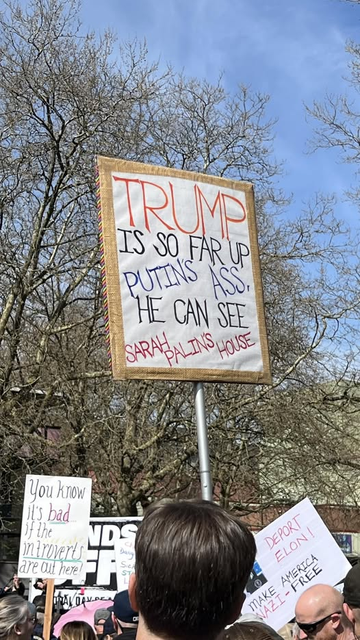 TRUMP
IS SO FAR UP
PUTIN'S ASS,
HE CAN SEE
SARAH PALIN'S HOUSE
You know
it's bad
if the
introverts
are out here!
NDS
FF
DEPORT
ELON!
MAKE AMERICA
NAZI-FREE